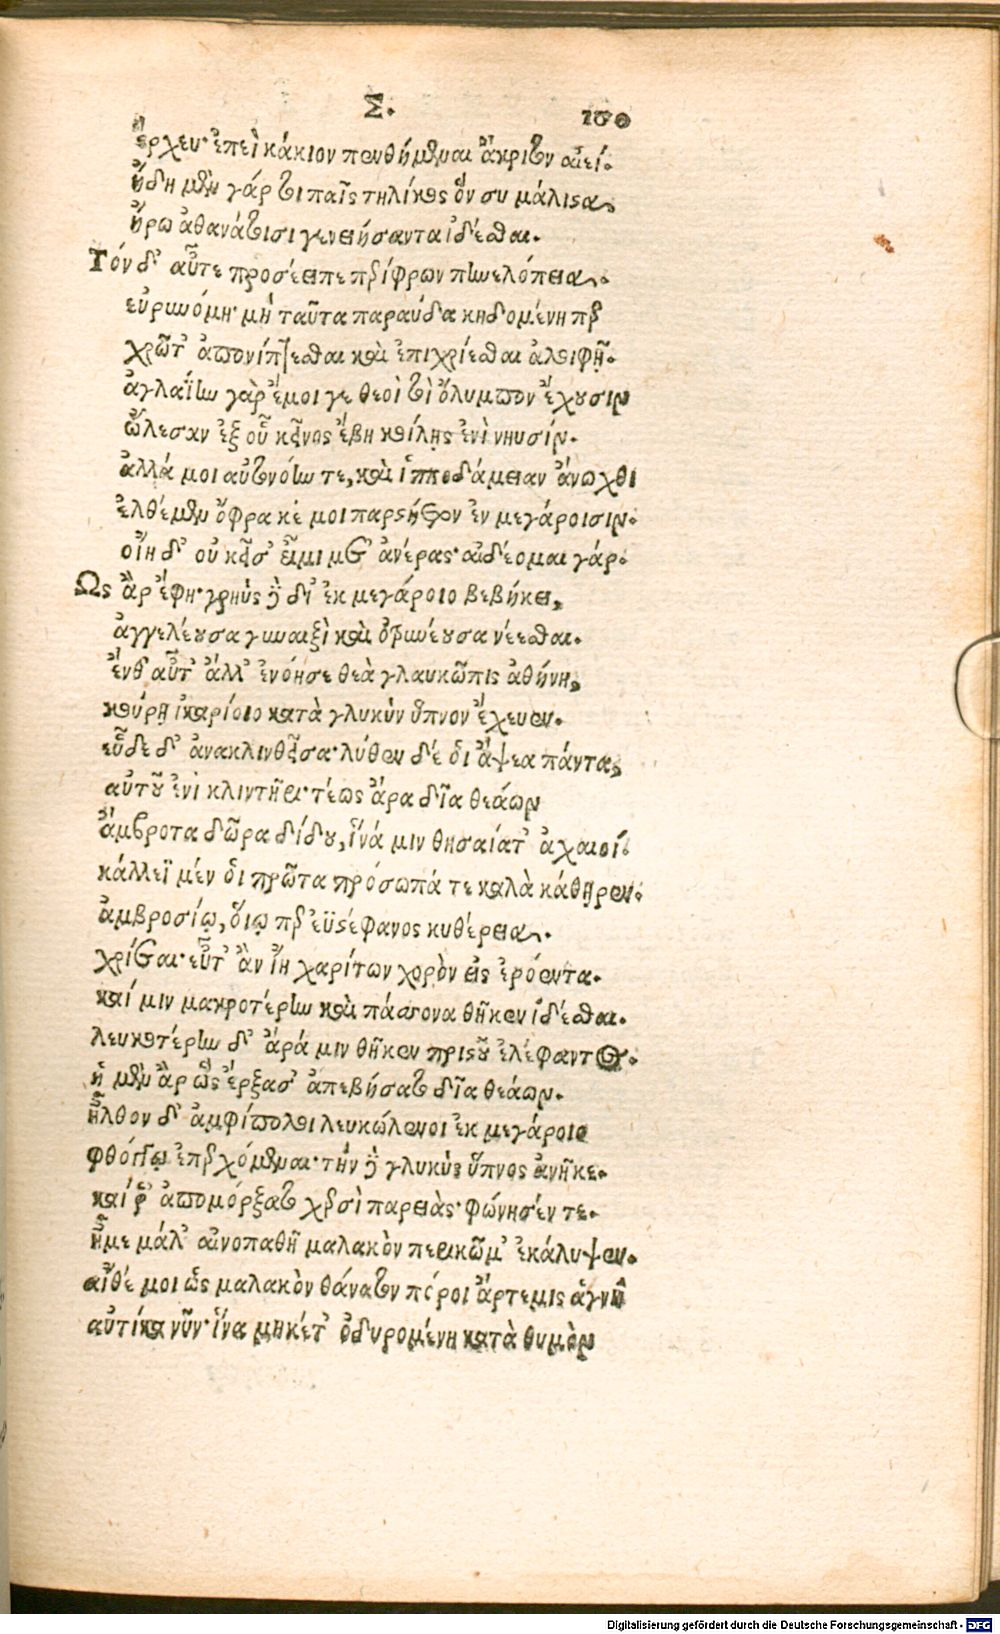 Σ. 159
ἔρχευ· ἐπεὶ κάκιον πενθήμεναι ἄκριτον αἰεί.
ἤδη μὲν γάρ τοι παῖς τηλίκος ὅν συ μάλιστα,
ἠρῶ ἀθανάτοισι γενειήσαντα ἰδέσθαι.
Τόν δ' αὖτε προσέειπε περίφρων πηνελόπεια.
εὐρυνόμη· μὴ ταῦτα παραύδα κηδομένη περ
χρῶτ' ἀπονίπτεσθαι καὶ ἐπιχρίεσθαι ἀλοιφῇ.
ἀγλαΐην γὰρ ἔμοι γε θεοὶ τοὶ ὄλυμπον ἔχουσιν
ὤλεσαν ἐξ οὗ κεῖνος ἔβη κοίλῃς ἐνὶ νηυσίν.
ἀλλά μοι αὐτονόην τε, καὶ ἱπποδάμειαν ἄνωχθι
ἐλθέμεν ὄφρα κέ μοι παρστήετον ἐν μεγάροισιν.
οἴη δ' οὐκ εἶσ' εἶμι μετ' ἀνέρας· αἰδέομαι γάρ.
Ως ἂρ ἔφη· γρηὺς δὲ δι' ἐκ μεγάροιο βεβήκει,
ἀγγελέουσα γυναιξὶ καὶ ὀτρυνέουσα νέεσθαι.
ἔνθ' αὖτ' ἄλλ' ἐνόησε θεὰ γλαυκῶπις ἀθήνη,
κούρῃ ἰκαρίοιο κατὰ γλυκὺν ὕπνον ἔχευεν.
εὗδε δ' ἀνακλινθεῖσα· λύθεν δέ οἱ ἅψεα πάντα,
αὐτοῦ ἐνὶ κλιντῆρι· τέως ἄρα δῖα θεάων
ἄμβροτα δῶρα δίδου, ἵνά μιν θησαίατ' ἀχαιοί.
κάλλεϊ μέν οἱ πρῶτα πρόσωπά τε καλὰ κάθηρεν.
ἀμβροσίῳ, οἵῳ περ ἐϋστέφανος κυθέρεια.
χρίεται· εὖτ' ἂν ἴη χαρίτων χορὸν εἰς ἐρόεντα.
καί μιν μακροτέρην καὶ πάσσονα θῆκεν ἰδέσθαι.
λευκοτέρην δ' ἄρά μιν θῆκεν πριστοῦ ἐλέφαντος.
ἡ μὲν ἂρ ὣς ἔρξασ' ἀπεβήσατο δῖα θεάων.
ἦλθον δ' ἀμφίπολοι λευκώλενοι ἐκ μεγάροιο
φθόγγῳ ἐπερχόμεναι· τὴν δὲ γλυκὺς ὕπνος ἀνῆκε.
καί ῥ' ἀπομόρξατο χερσὶ παρειὰς· φώνησέν τε.
ἦ με μάλ' αἰνοπαθῆ μαλακὸν περὶ κῶμ' ἐκάλυψεν.
αἴθέ μοι ὣς μαλακὸν θάνατον πόροι ἄρτεμις ἁγνὴ
αὐτίκα νῦν· ἵνα μηκέτ' ὀδυρομένη κατὰ θυμὸν
Digitalisierung gefördert durch die Deutsche Forschungsgemeinschaft - DFG